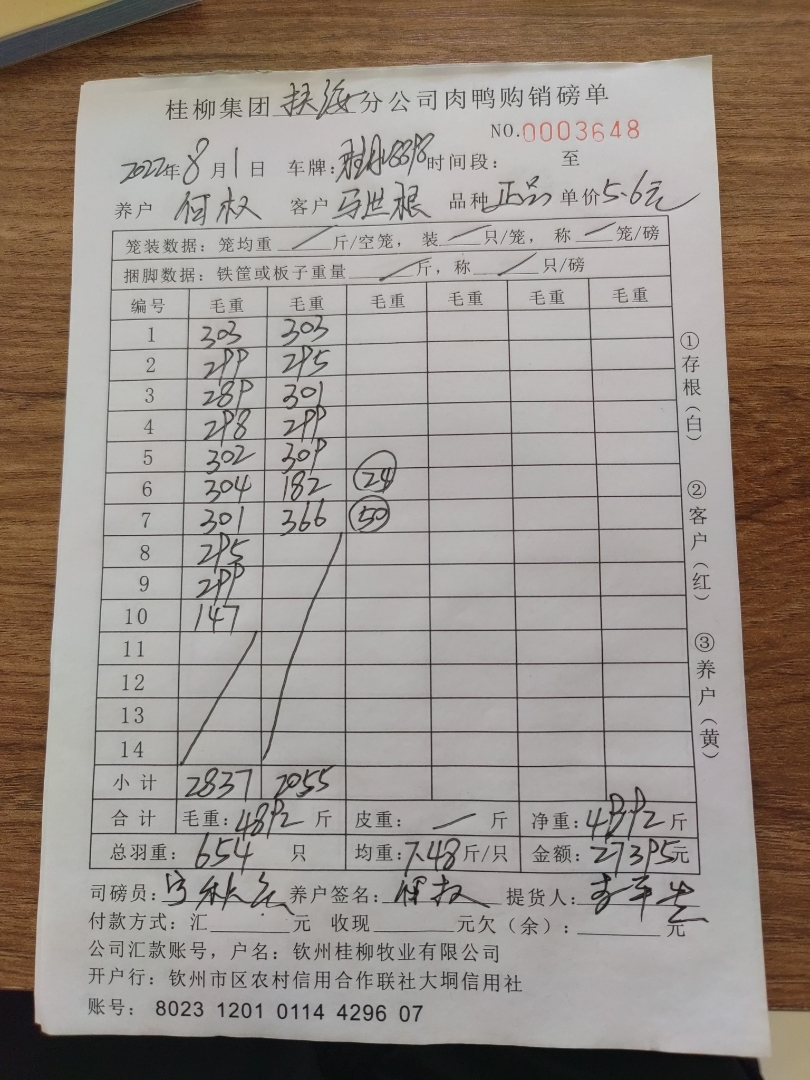 桂柳集团扶海分公司肉鸭购销磅单
NO.0003648
2022年8月1日 车牌: 时间段: 至
养户 何权 客户 马世根 品种 正品 单价 5.6元
笼装数据: 笼均重 / 斤/空笼, 装 / 只/笼, 称 / 笼/磅
捆脚数据: 铁筐或板子重量 / 斤, 称 / 只/磅
编号 毛重 毛重 毛重 毛重 毛重 毛重
1 303 303
2 299 295
3 289 301
4 298 299
5 302 309
6 304 182 24
7 301 366 50
8 295
9 299
10 147
11
12
13
14
小计 2837 2055
合计 毛重: 4892 斤 皮重: / 斤 净重: 4892 斤
总羽重: 654 只 均重: 7.48 斤/只 金额: 27395元
司磅员: 养户签名: 何权 提货人:
付款方式: 汇 元 收现 元欠(余): 元
公司汇款账号, 户名: 钦州桂柳牧业有限公司
开户行: 钦州市区农村信用合作联社大垌信用社
账号: 8023 1201 0114 4296 07
①存根(白)
②客户(红)
③养户(黄)